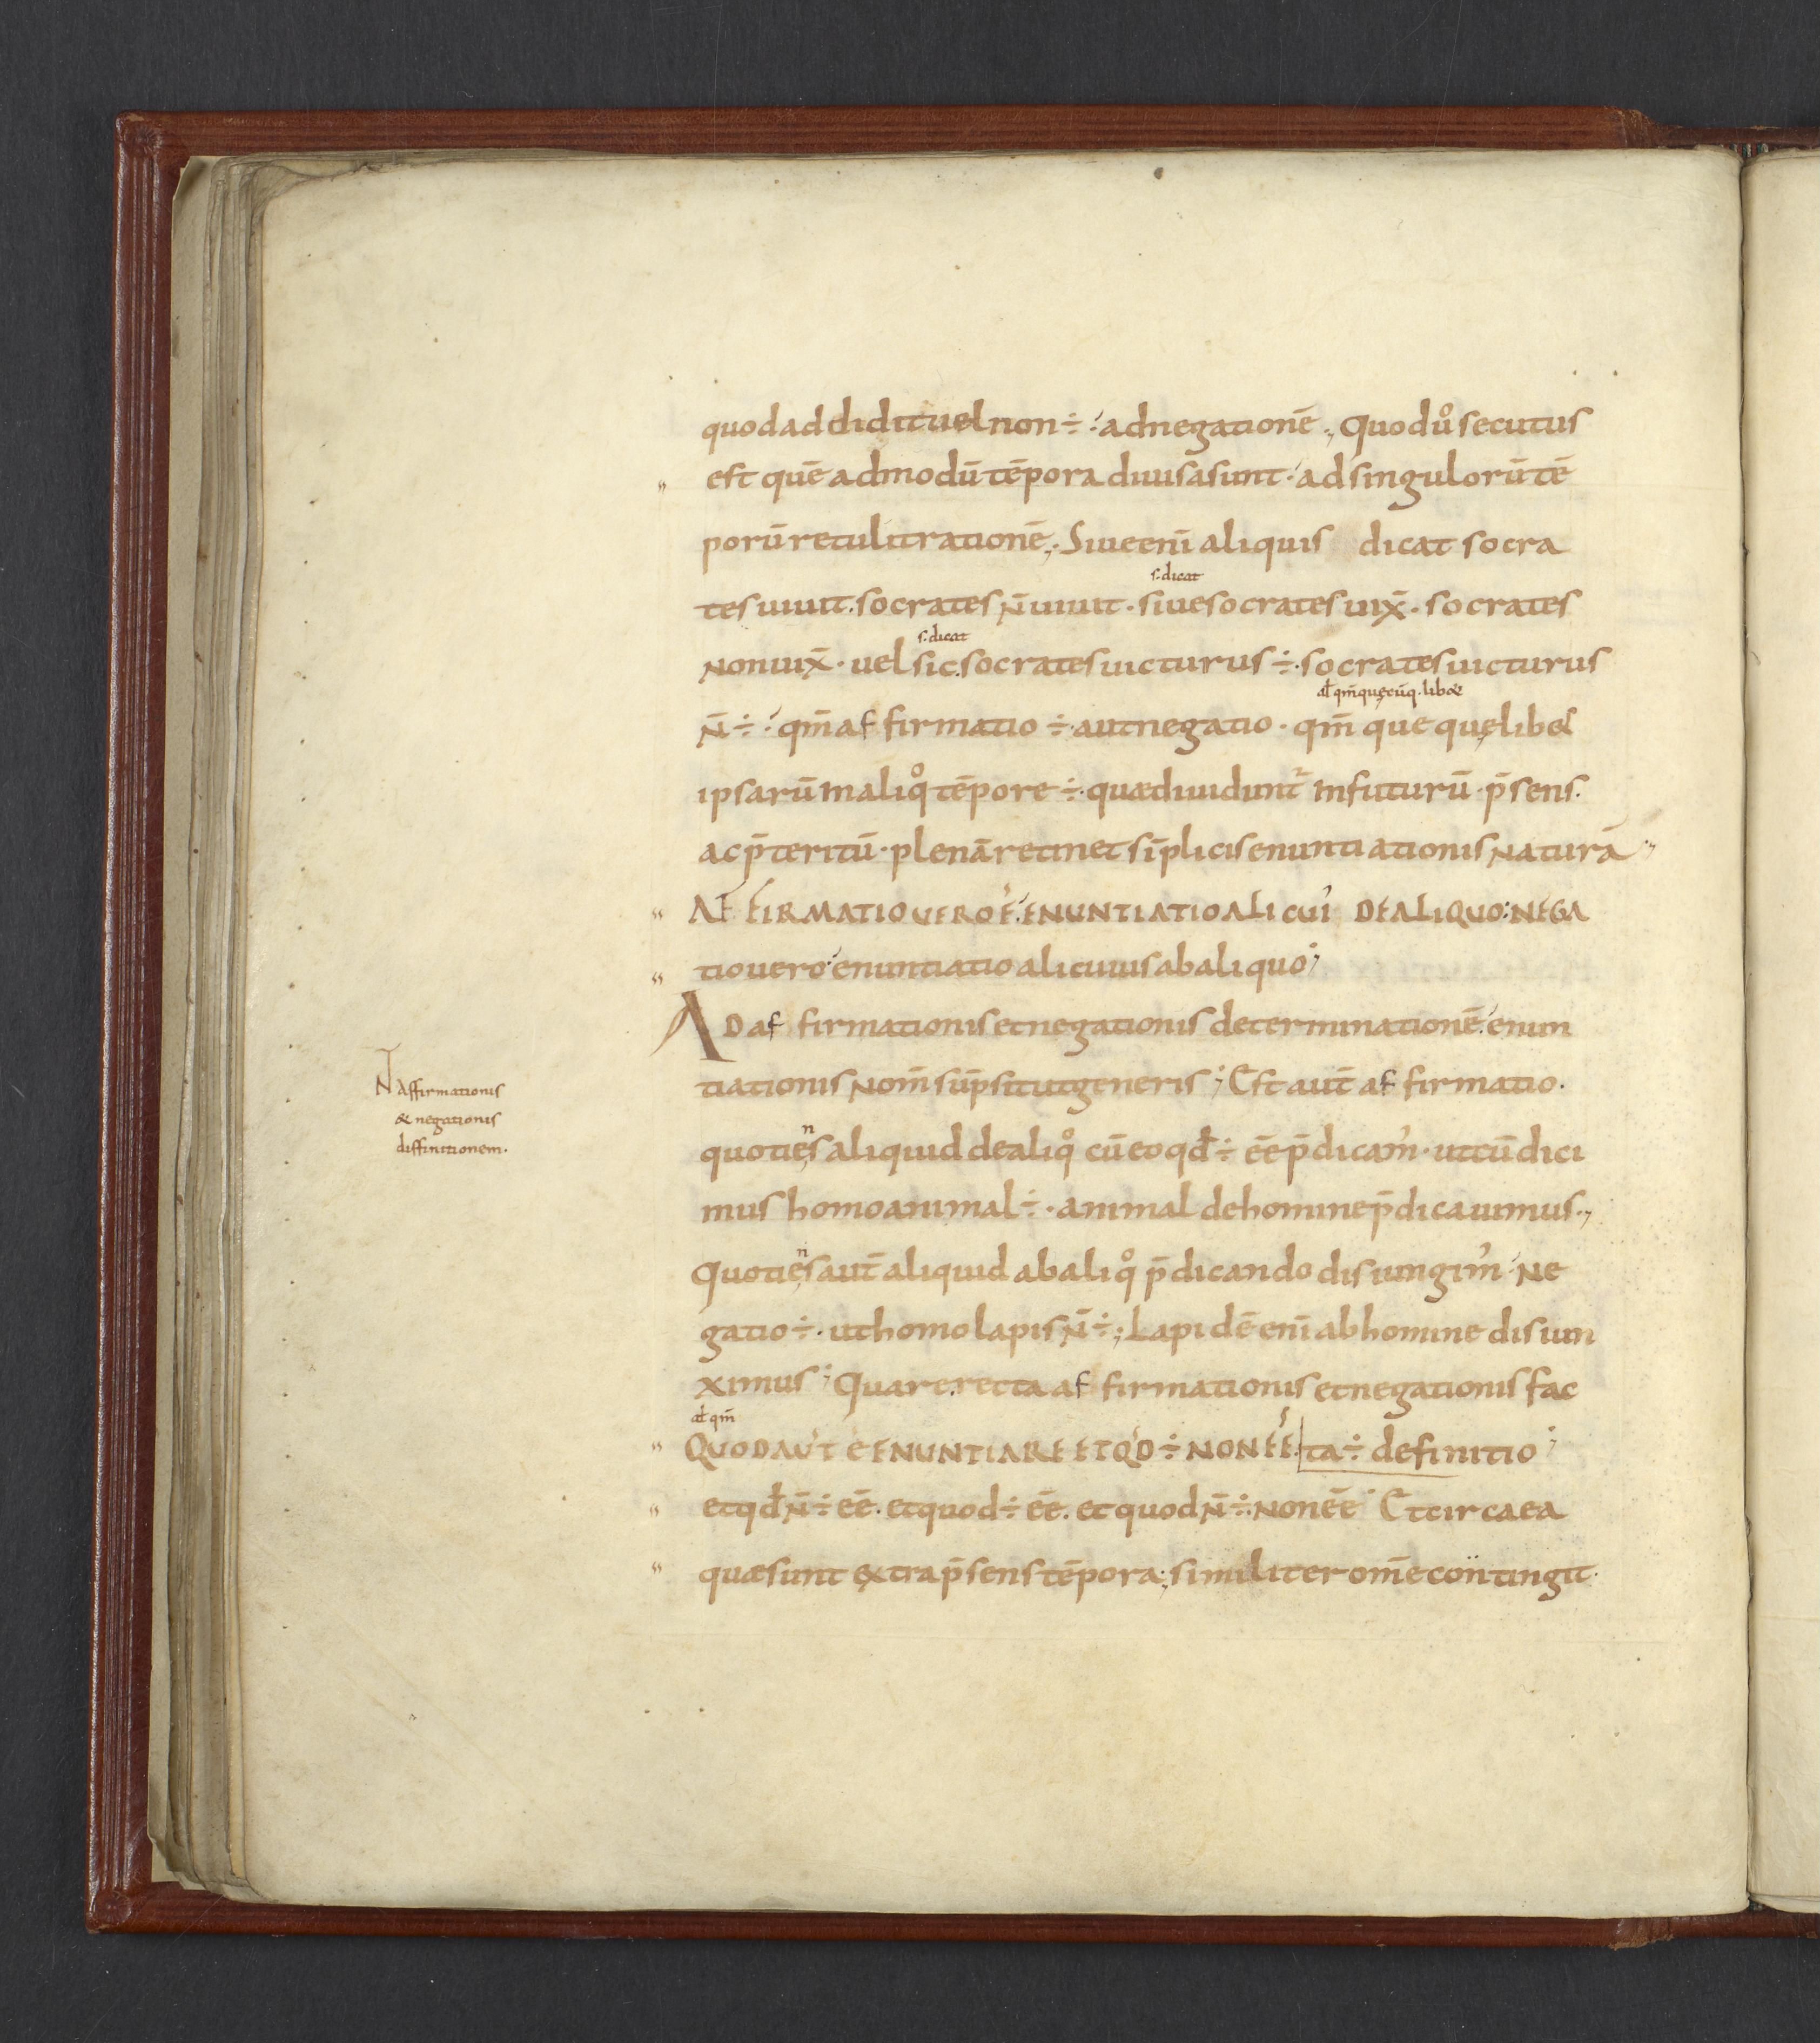 quod addidit uel non ÷ · ad negationē ; Quod ů secutus
est quē admodū tēpora diuisa sunt · ad singulorū tē
porū retulit rationē ; Siue enī aliquis dicat socra
s. dicat
tes uiuit . socrates n̄ uiuit . siue socrates uix̄ . socrates
s. dicat
non uix̄ . uel sic . socrates uicturus ÷ . socrates uicturus
aƚ qm̄ quęcūq . libet
n̄ ÷ · qm̄ affirmatio ÷ · aut negatio . qm̄ que quęlib&
ipsarū in aliq̊ tēpore ÷ · quæ diuidunt᷑ in futurū . p̄sens .
ac p̄teritū . plenā retinet sīplicis enuntiationis naturā ;
AFFIRMATIO UERO Ē ENUNTIATIO ALICUI᾽ DE ALIQUO : NEGA
tio uero enuntiatio alicuius ab aliquo ;
AD affirmationis et negationis determinationē enun
tiationis nom̄ sūpsit ut generis ; Est aut̄ affirmatio .
n
quotięs aliquid de aliq̊ cū eo qđ ÷ ēē p̄dicam᾽ . ut cū dici
mus homo animal ÷ . animal de homine p̄dicauimus ;
n
Quotięs aut̄ aliquid ab aliq̊ p̄dicando disiungim᾽ ne
gatio ÷ . ut homo lapis n̄ ÷ ; Lapidē enī ab homine disiun
ximus ; Quare recta affirmationis et negationis fac
aƚ qm̄
QUOD AUT̄ Ē ENUNTIARE ET QD ÷ NON ĒĒ . ta ÷ definitio ;
et qđ n̄ ÷ ēē . et quod ÷ ēē . et quod n̄ ÷ . non ēē ; Et circa ea
quæ sunt extra p̄sens tēpora ; similiter om̄e contingit .
N̄ affirmationis
& negationis
diffinitionem .